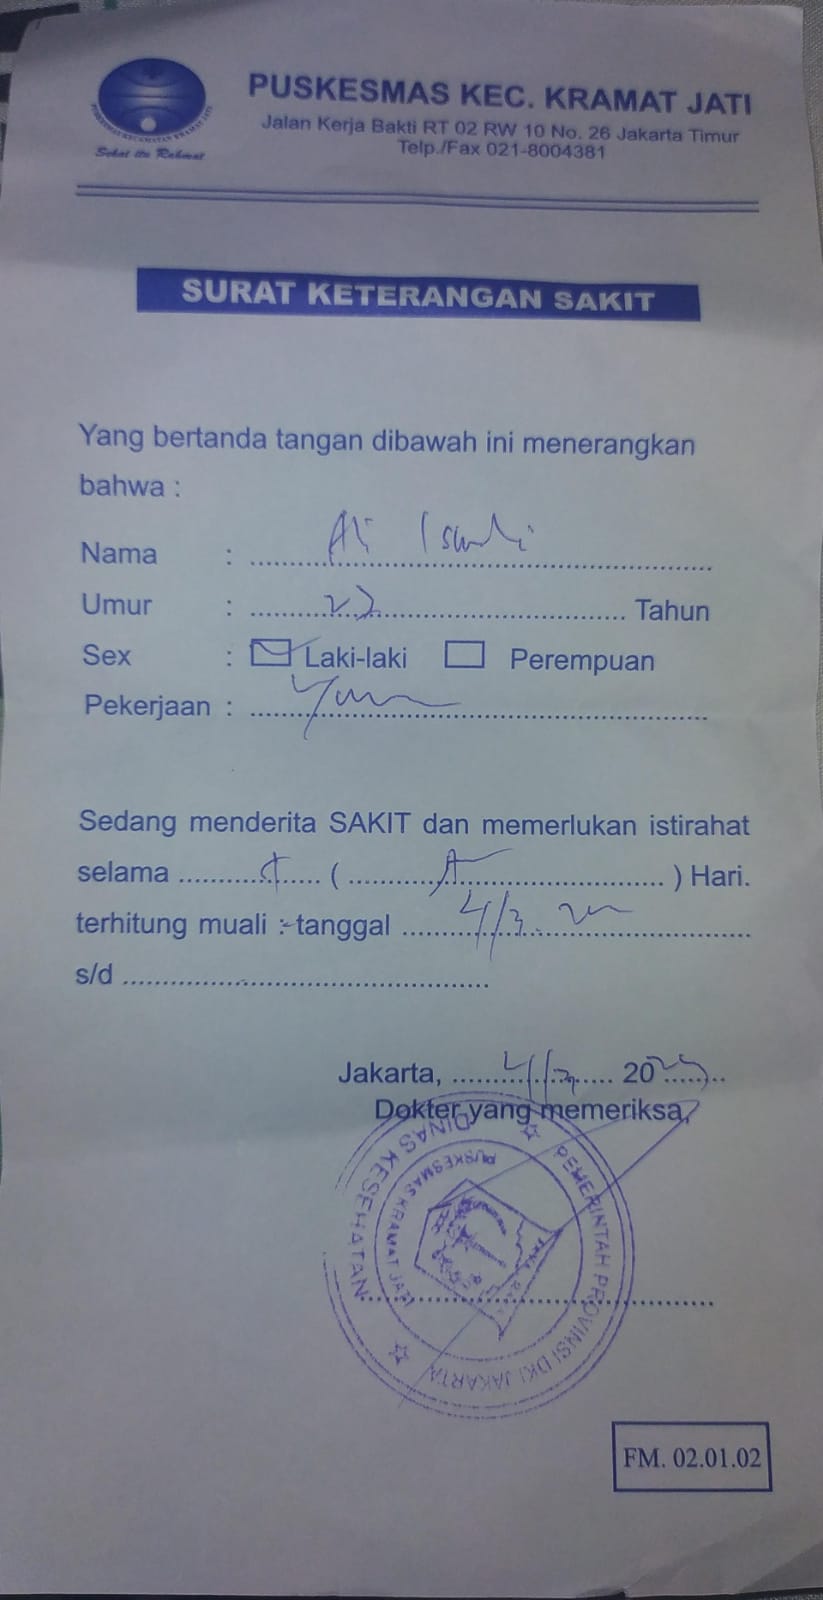 PUSKESMAS KECAMATAN KRAMAT JATI
Sehat itu Rahmat
PUSKESMAS KEC. KRAMAT JATI
Jalan Kerja Bakti RT 02 RW 10 No. 26 Jakarta Timur
Telp./Fax 021-8004381
SURAT KETERANGAN SAKIT
Yang bertanda tangan dibawah ini menerangkan
bahwa :
Nama : Ali
Umur : Tahun
Sex : Laki-laki Perempuan
Pekerjaan :
Sedang menderita SAKIT dan memerlukan istirahat
selama ( ) Hari.
terhitung muali :-tanggal 4/3
s/d
Jakarta, 4/3 20
Dokter yang memeriksa,
PEMERINTAH PROVINSI DKI JAKARTA
DINAS KESEHATAN
PUSKESMAS KRAMAT JATI
JAYA RAYA
FM. 02.01.02